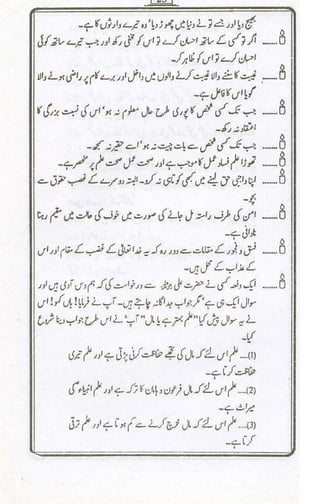 بھیج دیا اور جسے تو نے دنیا میں چھوڑ دیا' وہ تیرے وارثوں کا ہے۔
اگر تو کسی کے ساتھ احسان کرے تو اس کو مخفی رکھ اور جب تیرے ساتھ کوئی
احسان کرے تو اس کو ظاہر کر۔
غیبت کا سننے والا غیبت کرنے والوں میں داخل اور برے کام پر راضی ہونے والا
گویا اس کا فاعل ہے۔
جب تک کسی شخص کا پوری طرح حال معلوم نہ ہو' اس کی نسبت بزرگی کا
اعتقاد نہ رکھ۔
جب تک کسی شخص سے بات چیت نہ ہو' اسے حقیر نہ سمجھ۔
تھوڑا علم فساد عمل کا موجب ہے اور صحت عمل صحت علم پر منحصر ہے۔
اپنا واجبی حق لینے میں کبھی کوتاہی نہ کرو۔ البتہ دوسرے کے غصب حقوق سے
بچو۔
امن کی طرف راستہ مل جانے کی صورت میں خوف کی حالت میں مقیم رہنا
نادانی ہے۔
فسق و فجور کے مقامات سے دور رہ کہ یہ خدا تعالیٰ کے غضب کے مقام اور اس
کے عذاب کے محل ہیں۔
ایک دفعہ کسی نے حضرت علی سے درخواست کی کہ ہم دس آدمی ہیں اور
سوال ایک ہی ہے' مگر جواب جداگانہ چاہتے ہیں۔ آپ نے فرمایا! ہاں کہو! اس
نے یہ سوال پیش کیا "علم بہتر ہے یا مال" آپ نے اس طرح جواب دینا شروع
کیا۔
(1)..... علم اس لئے کہ مال کی تجھے حفاظت کرنی پڑتی ہے اور علم تیری
حفاظت کرتا ہے۔
(2)..... علم اس لئے کہ مال فرعون و ہامان کا ترکہ ہے اور علم انبیاء کی
میراث ہے۔
(3)..... علم اس لئے کہ مال خرچ کرنے سے کم ہوتا ہے اور علم ترقی
کرتا ہے۔